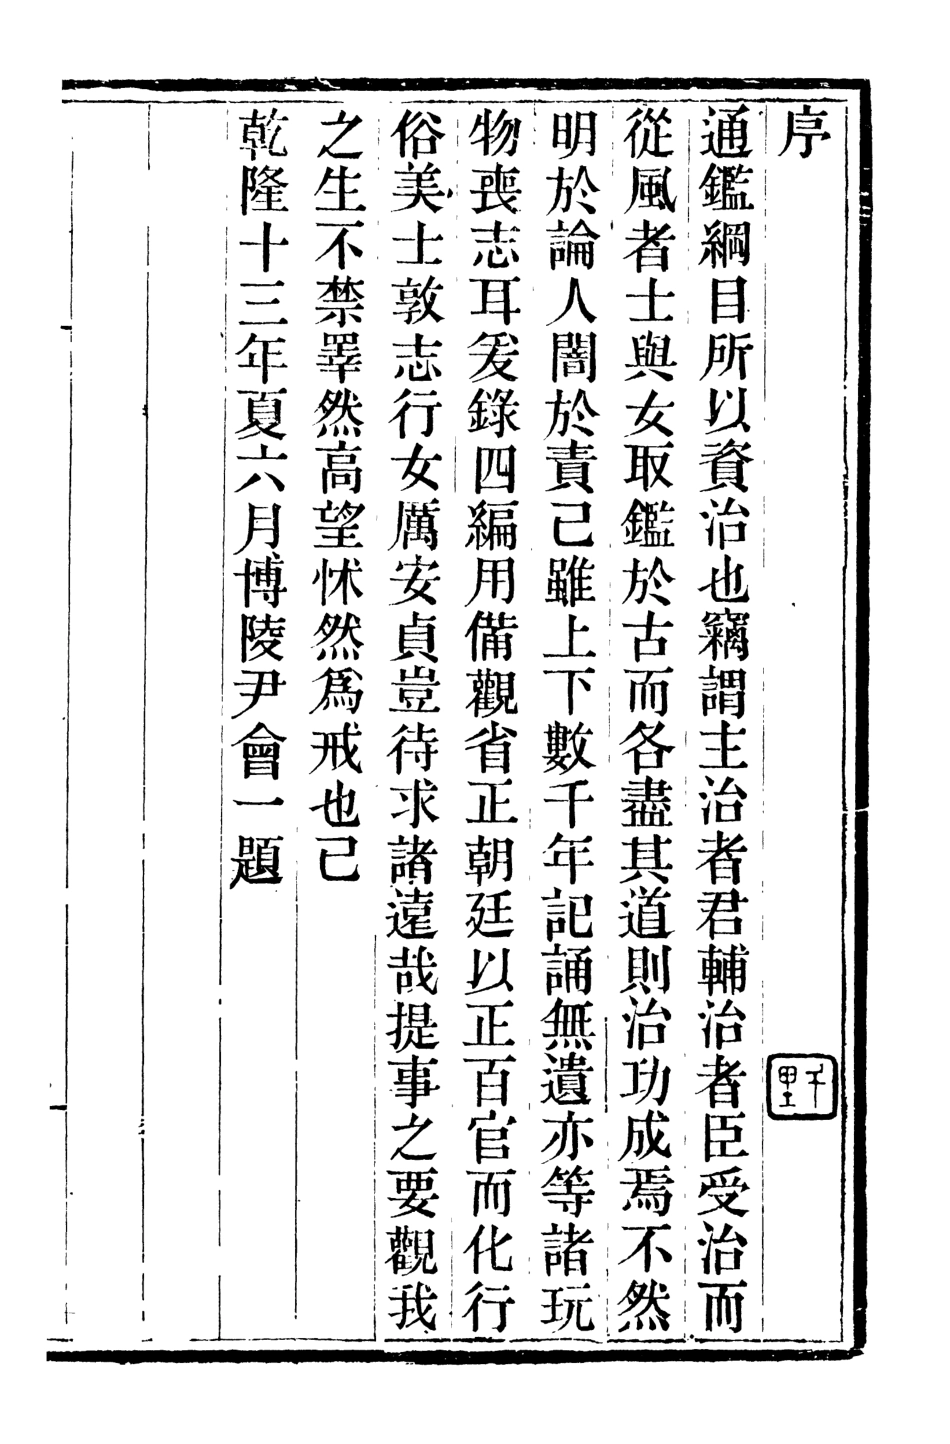 序
通鑑綱目所以資治也竊謂主治者君輔治者臣受治而
從風者士與女取鑑於古而各盡其道則治功成焉不然
明於論人闇於責己雖上下數千年記誦無遺亦等諸玩
物喪志耳爰錄四編用備觀省正朝廷以正百官而化行
俗美士敦志行女厲安貞豈待求諸遠哉提事之要觀我
之生不禁睪然高望怵然爲戒也已
乾隆十三年夏六月博陵尹會一題